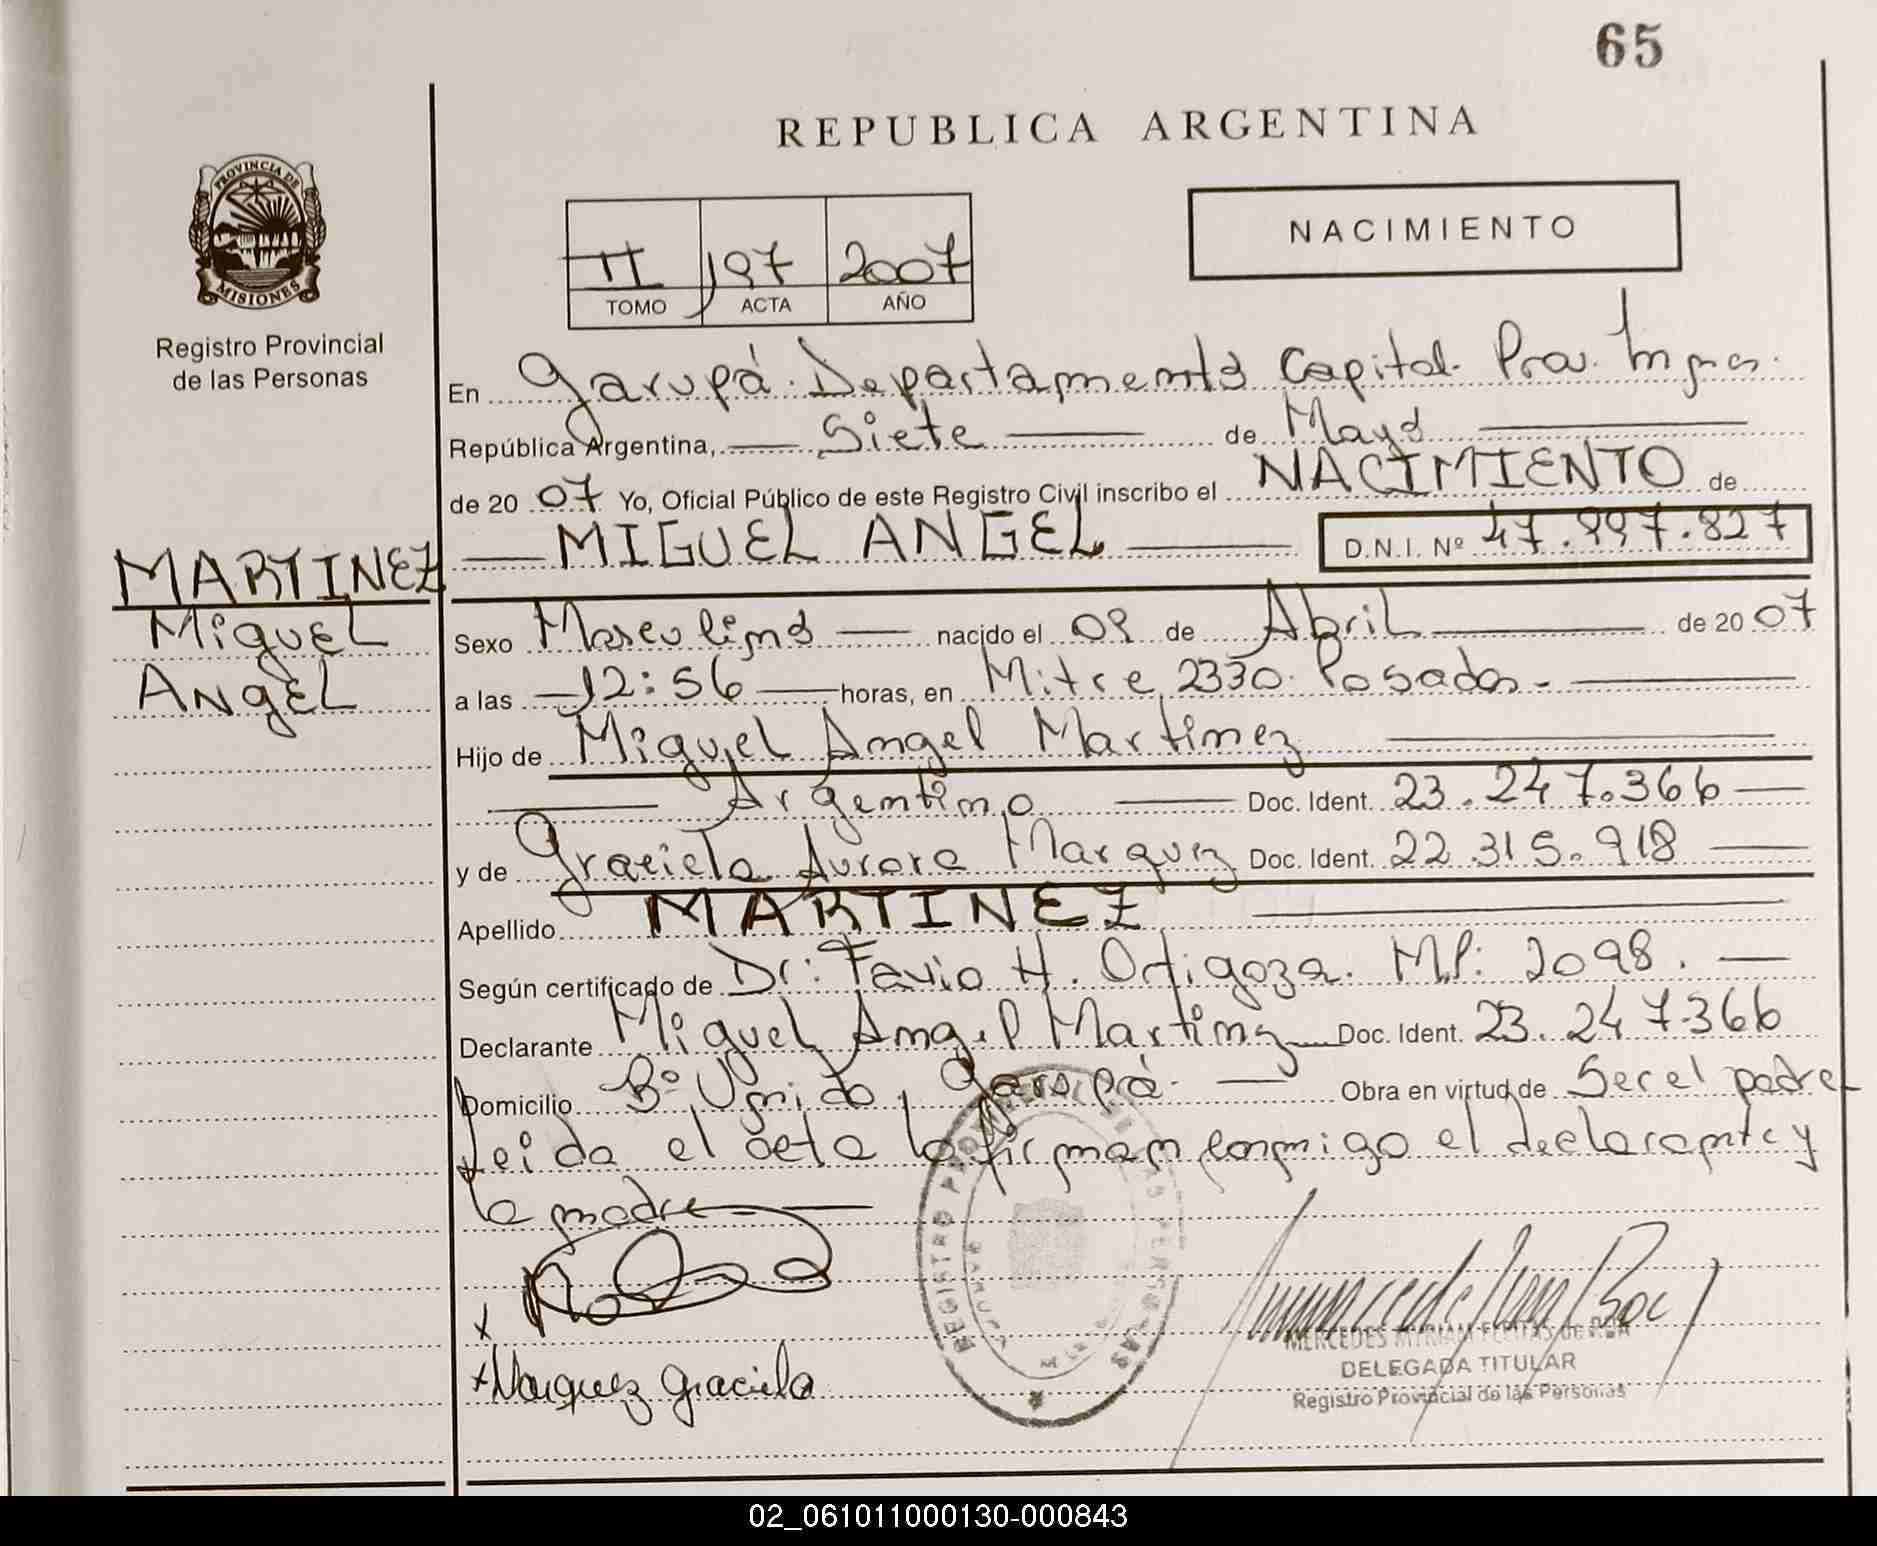 65
REPUBLICA ARGENTINA
PROVINCIA DE
MISIONES
Registro Provincial
de las Personas
NACIMIENTO
II 197 2007
TOMO ACTA AÑO
En Garupá. Departamento Capital. Prov. Mnes.
República Argentina, Siete de Mayo
de 2007 Yo, Oficial Público de este Registro Civil inscribo el NACIMIENTO de
MIGUEL ANGEL D.N.I. Nº 47.997.827
MARTINEZ
Miguel
Angel
Sexo Masculino nacido el 09 de Abril de 2007
a las 12:56 horas, en Mitre 2330. Posadas.
Hijo de Miguel Angel Martinez
Argentino Doc. Ident. 23.247.366
y de Graciela Aurora Marquez Doc. Ident. 22.315.918
Apellido MARTINEZ
Según certificado de Dr: Favio H. Ortigoza. M.P: 2098.
Declarante Miguel Angel Martinez Doc. Ident. 23.247.366
Domicilio Bº Unido, Garupá. Obra en virtud de Ser el padre
Leida el acta la firman conmigo el declarante y
la madre.
x
x Marquez Graciela
REGISTRO PROVINCIAL DE LAS PERSONAS
GARUPA
MERCEDES MYRIAM FLEITAS de ROA
DELEGADA TITULAR
Registro Provincial de las Personas
02_061011000130-000843